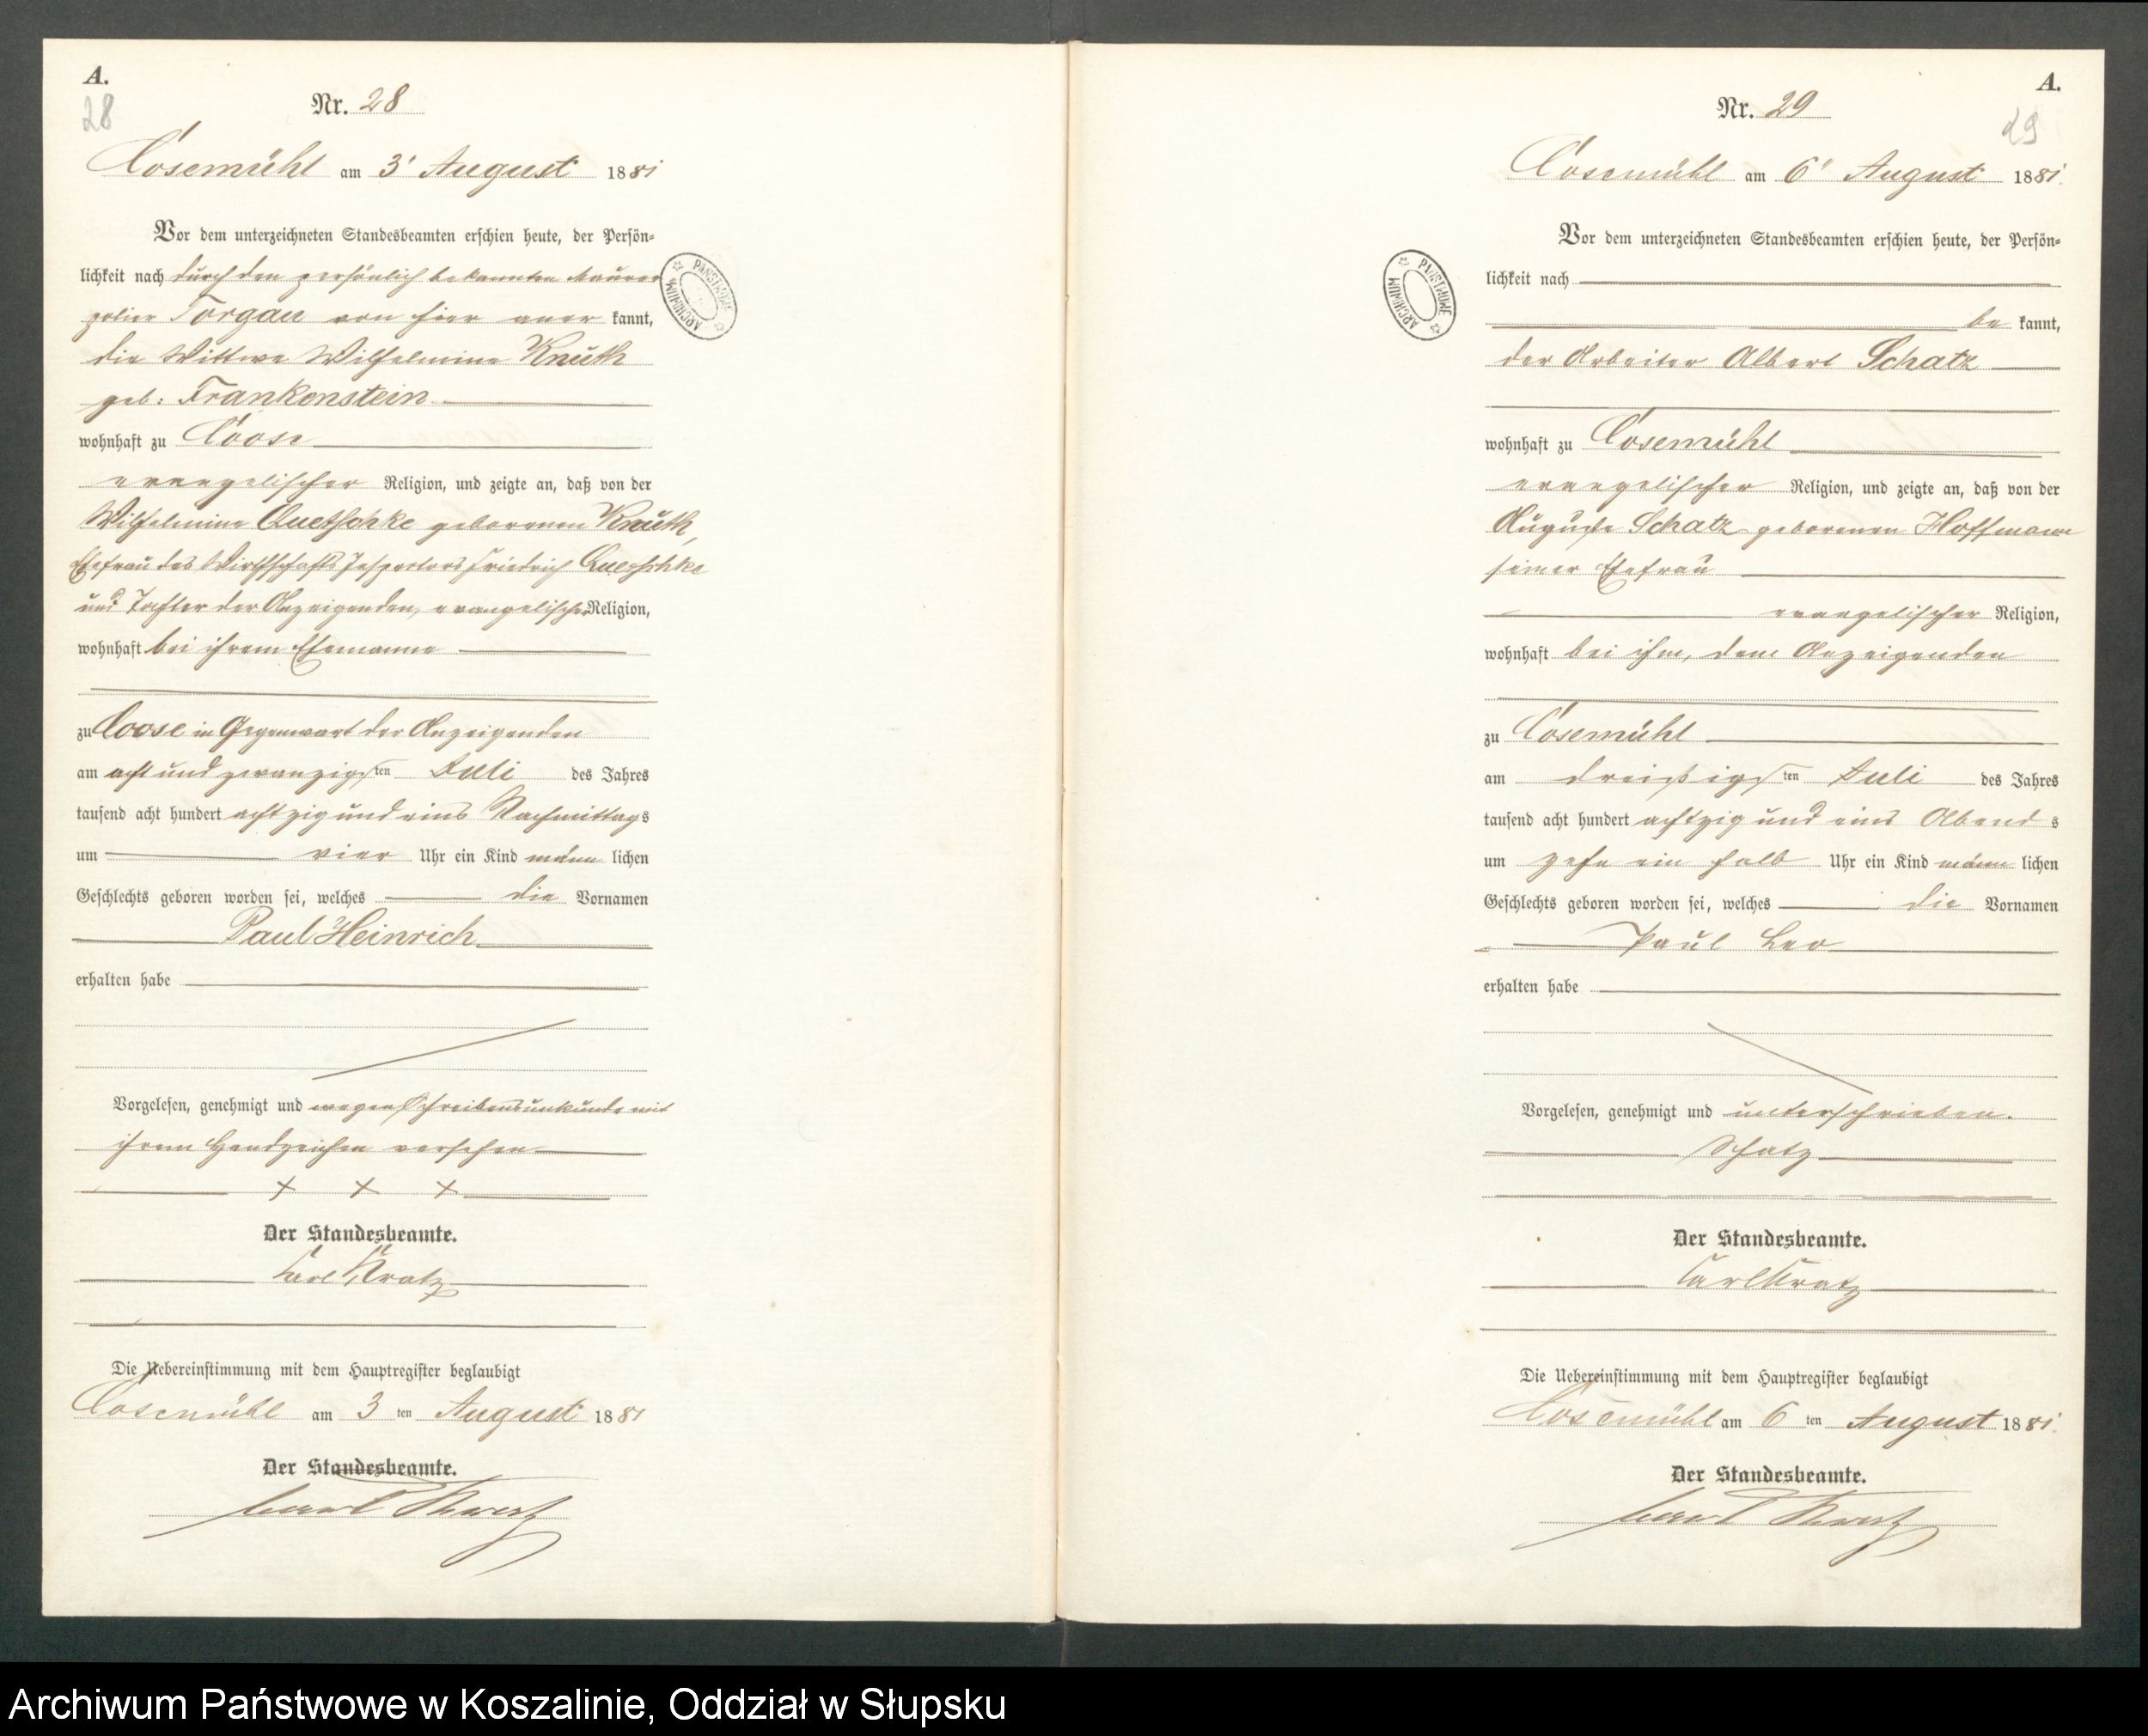 A.
28
Nr. 28
Cosemühl am 3' August 1881
Vor dem unterzeichneten Standesbeamten erschien heute, der Persön-
lichkeit nach durch den persönlich bekannten Maurer
polier Torgau von hier aner kannt,
die Wittwe Wilhelmine Knuth
geb: Frankenstein
wohnhaft zu Coose
evangelischer Religion, und zeigte an, daß von der
Wilhelmine Quetschke geborenen Knuth,
Ehefrau des Wirthschafts Inspectors Friedrich Quetschke
und Tochter der Anzeigenden, evangelischer Religion,
wohnhaft bei ihrem Ehemanne
zu Coose in Gegenwart der Anzeigenden
am acht und zwanzigsten Juli des Jahres
tausend acht hundert achtzig und eins Nachmittags
um vier Uhr ein Kind männ lichen
Geschlechts geboren worden sei, welches die Vornamen
Paul Heinrich
erhalten habe
Vorgelesen, genehmigt und wegen Schreibensunkunde mit
ihrem Handzeichen versehen
+ + +
Der Standesbeamte.
Carl Kratz
Die Uebereinstimmung mit dem Hauptregister beglaubigt
Cosemühl am 3 ten August 1881
Der Standesbeamte.
Carl Kratz
A.
29
Nr. 29
Cosemühl am 6' August 1881.
Vor dem unterzeichneten Standesbeamten erschien heute, der Persön-
lichkeit nach
be kannt,
der Arbeiter Albert Schatz
wohnhaft zu Cosemühl
evangelischer Religion, und zeigte an, daß von der
Auguste Schatz geborenen Hoffmann
seiner Ehefrau
evangelischer Religion,
wohnhaft bei ihm, dem Anzeigenden
zu Cosemühl
am dreißigsten Juli des Jahres
tausend acht hundert achtzig und eins Abend s
um zehn ein halb Uhr ein Kind männ lichen
Geschlechts geboren worden sei, welches die Vornamen
Paul Leo
erhalten habe
Vorgelesen, genehmigt und unterschrieben.
Schatz
Der Standesbeamte.
Carl Kratz
Die Uebereinstimmung mit dem Hauptregister beglaubigt
Cosemühl am 6 ten August 1881.
Der Standesbeamte.
Carl Kratz
ARCHIWUM PAŃSTWOWE
ARCHIWUM PAŃSTWOWE
Archiwum Państwowe w Koszalinie, Oddział w Słupsku